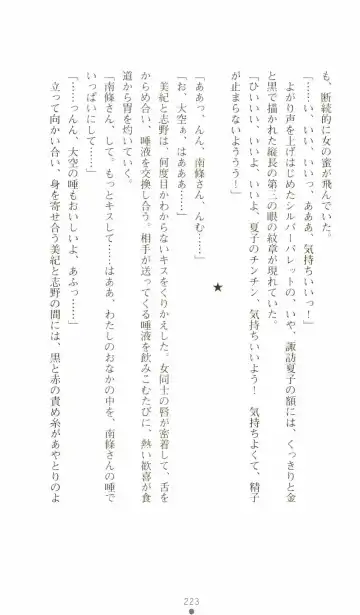 も、断続的に女の蜜が飛びだしていた。
「……い、いい、いいっ、あああ、気持ちいいっ！」
よがり声を上げはじめたシルバーバレットの、いや、諏訪夏子の額には、くっきりと金
と黒で描かれた縦長の第三の眼の紋章が現れていた。
「ひいいい、いいよ、いいよ、夏子のチンチン、気持ちいいよう！　気持ちよくて、精子
が止まらないようう！」
★
「ああっ、んん、南條さん、んむ……」
「お、大空ぁ、はあああ……」
美紀と志野は、何度目かわからないキスをくりかえした。女同士の唇が密着して、舌を
からめ合い、唾液を交換し合う。相手が送ってくる唾液を飲みこむたびに、熱い歓喜が食
道から胃を灼いていく。
「南條さん、して。もっとキスして……はああ、わたしのおなかの中を、南條さんの唾で
いっぱいにして……」
「……っんん、大空の唾もおいしいよ、あふっ……」
立って向かい合い、身を寄せ合う美紀と志野の間には、黒と赤の責め糸があやとりのよ
223